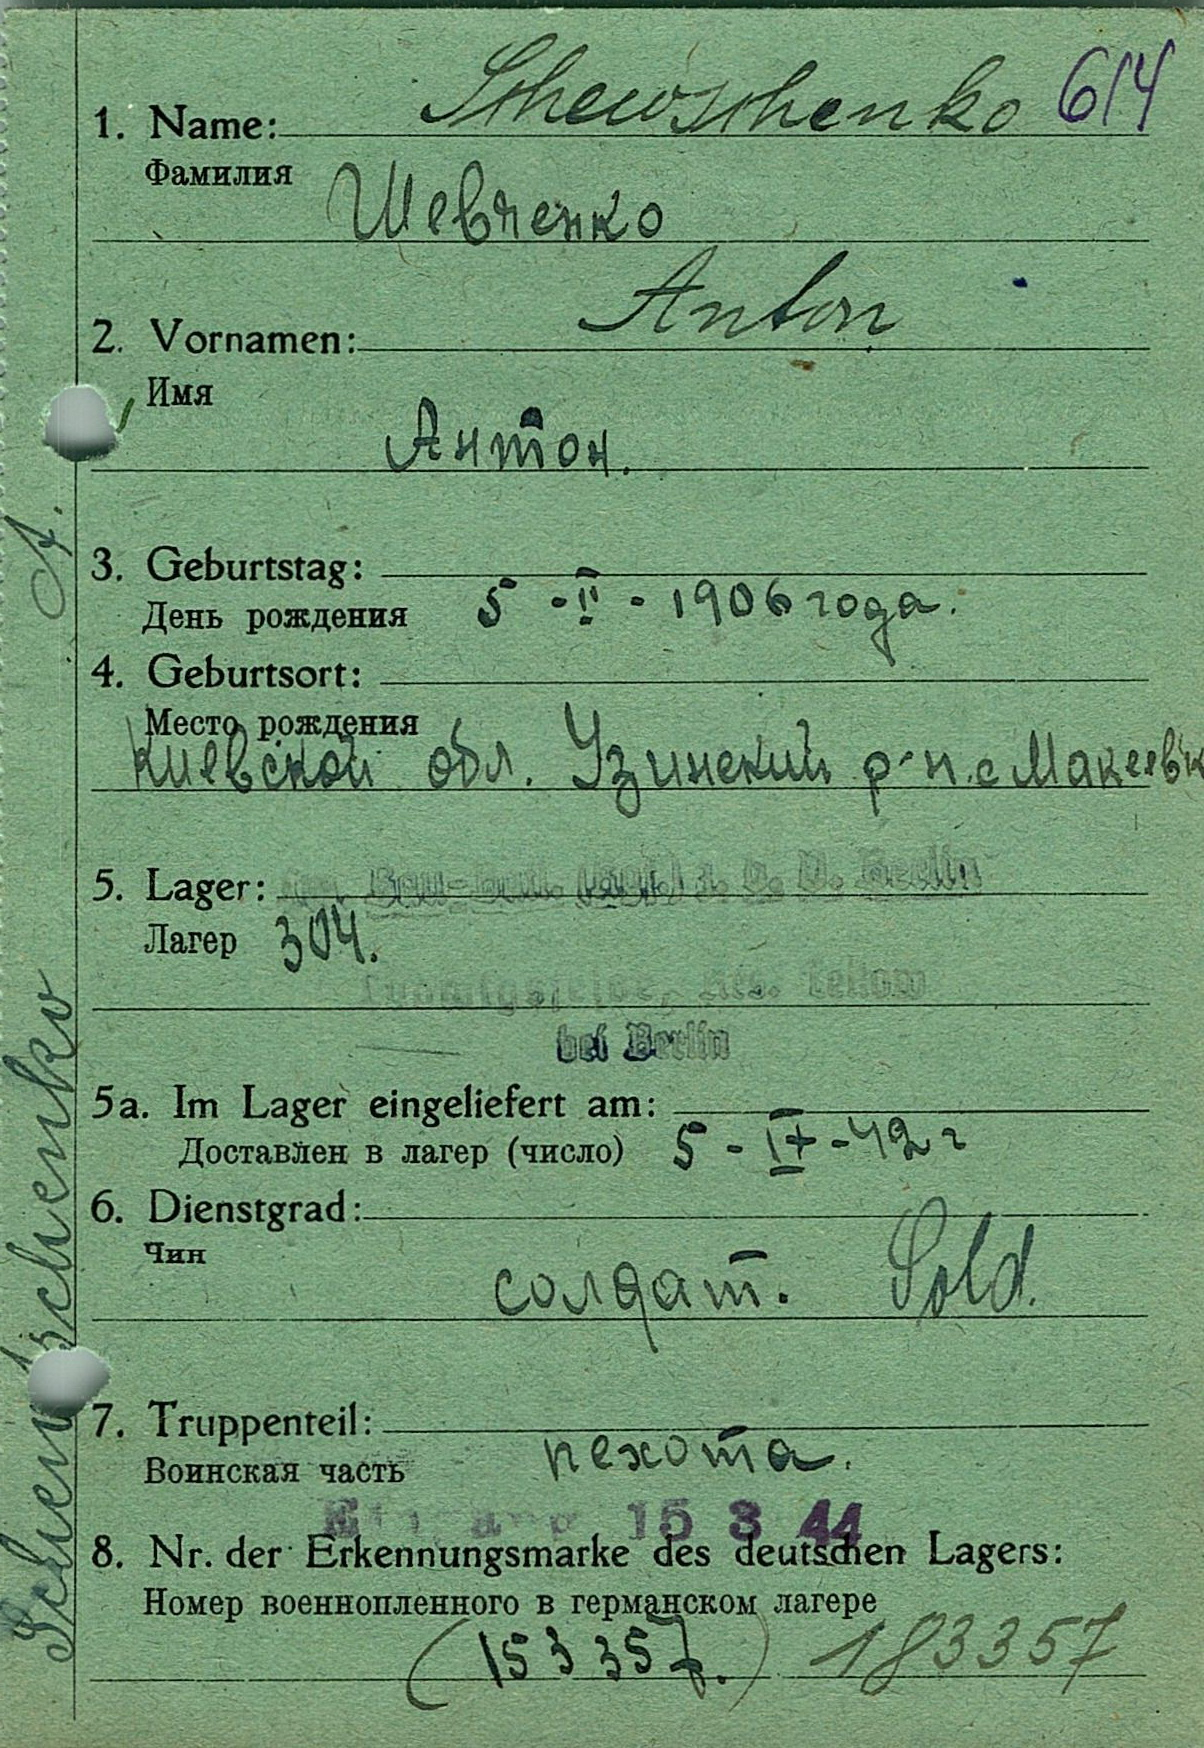 614
1. Name: Schewschenko
Фамилия
Шевченко
2. Vornamen: Anton
Имя
Антон.
3. Geburtstag:
День рождения 5-II-1906 года.
4. Geburtsort:
Место рождения
Киевской обл. Узинский р-н. с Макеевк
5. Lager: Bau-Batl. Berlin
Лагер 304.
Ludwigsfelde, Krs. Teltow
bei Berlin
5a. Im Lager eingeliefert am:
Доставлен в лагер (число) 5-IX-42 г
6. Dienstgrad:
Чин
солдат. Sold.
7. Truppenteil:
Воинская часть пехота.
Eingang 15 3 44
8. Nr. der Erkennungsmarke des deutschen Lagers:
Номер военнопленного в германском лагере
(153357.) 183357
Schewtschenko A.